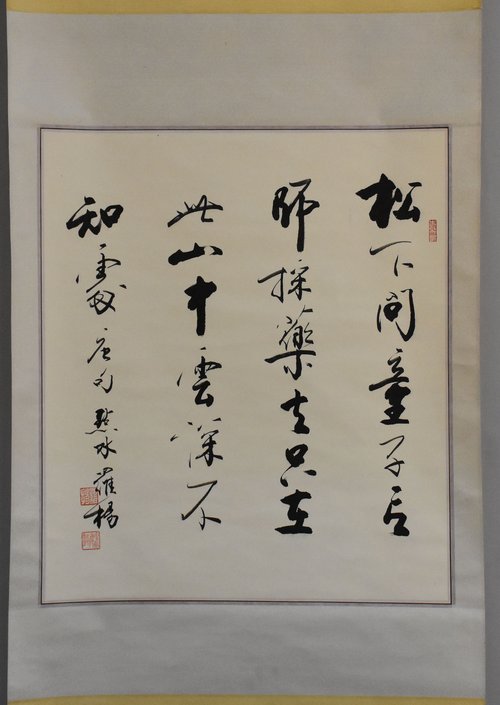 松下问童子言
師採藥去只在
此山中雲深不
知處唐句點水羅楊